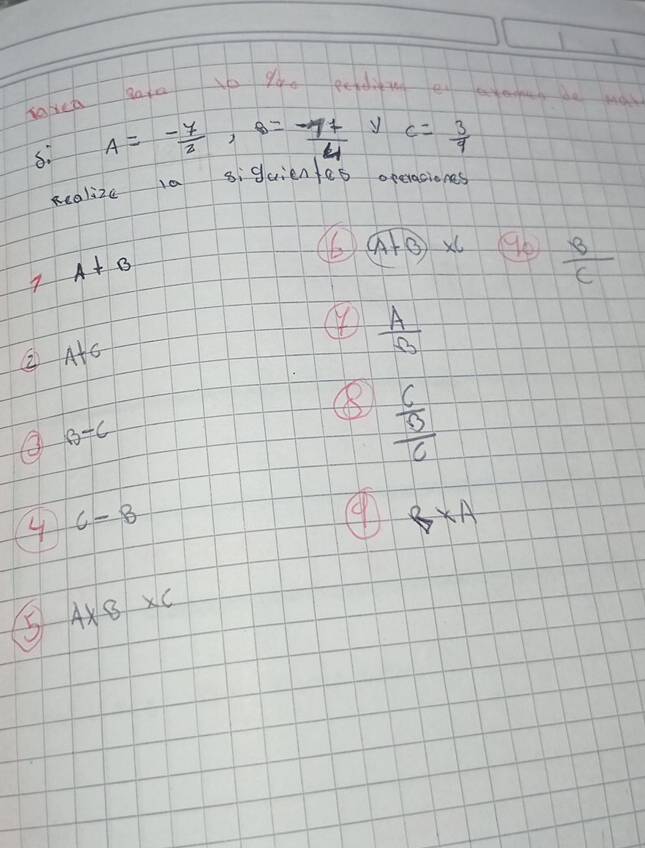 tarea para lo que perdieron el examen de
Si A = -7/2 , B = -7/4 y C = 3/9
Realize la siguientes operaciones
1 A + B
② A+C
③ B-C
④ C - B
⑤ A x B x C
⑥ (A+B) x C
⑦ A/B
⑧ C/B/C
⑨ B x A
⑩ B/C